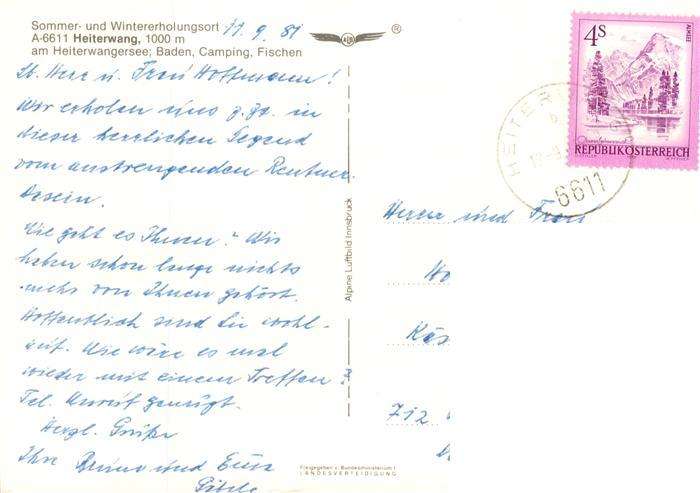 Sommer- und Wintererholungsort 11.9.81
A-6611 Heiterwang, 1000 m
am Heiterwangersee; Baden, Camping, Fischen
ALB ®
Lb. Herr u. Frau Hoffmann!
Wir erholen uns z.Zt. in
dieser herrlichen Gegend
vom anstrengenden Rentner-
Dasein.
Wie geht es Ihnen? Wir
haben schon lange nichts
mehr von Ihnen gehört.
Hoffentlich sind Sie wohl-
auf. Wie wäre es mal
wieder mit einem Treffen?
Tel. Anruf genügt.
Herzl. Grüße
Ihre Bruno und
Alpine Luftbild Innsbruck
Freigegeben v. Bundesministerium f.
LANDESVERTEIDIGUNG
4S
ALMSEE
REPUBLIK ÖSTERREICH
HEITER
6611
Herrn und Frau
Ho
Käs
712